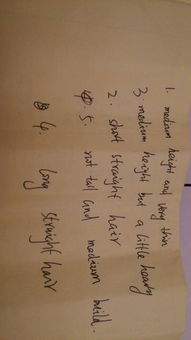 1. medium height and very thin
3. medium height but a little heavy
2. short straight hair
5. not tall and medium build.
4. long straight hair